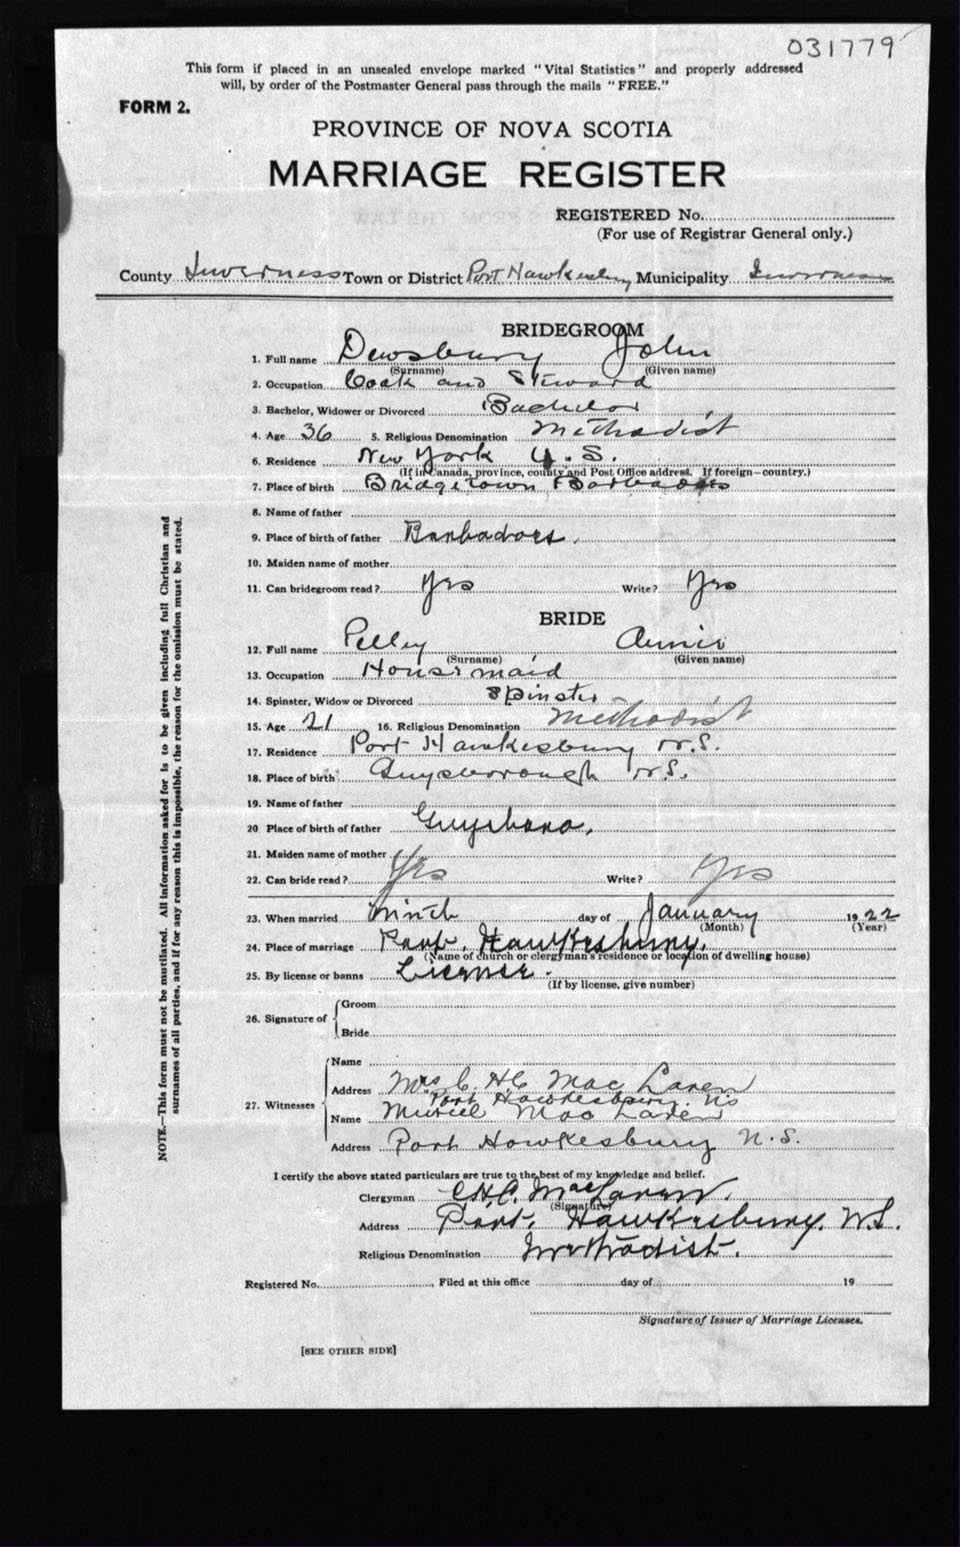 031779
This form if placed in an unsealed envelope marked "Vital Statistics" and properly addressed
will, by order of the Postmaster General pass through the mails "FREE."
FORM 2.
PROVINCE OF NOVA SCOTIA
MARRIAGE REGISTER
REGISTERED No.
(For use of Registrar General only.)
County Inverness Town or District Port Hawkesbury Municipality Inverness
BRIDEGROOM
1. Full name Dewsbury John
(Surname) (Given name)
2. Occupation Cook and Steward
3. Bachelor, Widower or Divorced Bachelor
4. Age 36 5. Religious Denomination Methodist
6. Residence New York U.S.
(If in Canada, province, county and Post Office address. If foreign—country.)
7. Place of birth Bridgetown, Barbadoes
8. Name of father
9. Place of birth of father Barbadoes.
10. Maiden name of mother
11. Can bridegroom read? Yes Write? Yes
BRIDE
12. Full name Pelley Annie
(Surname) (Given name)
13. Occupation Housemaid
14. Spinster, Widow or Divorced Spinster
15. Age 21 16. Religious Denomination Methodist
17. Residence Port Hawkesbury N.S.
18. Place of birth Guysborough N.S.
19. Name of father
20 Place of birth of father
21. Maiden name of mother
22. Can bride read? Yes Write? Yes
23. When married Ninth day of January 1922
(Month) (Year)
24. Place of marriage Port. Hawkesbury.
(Name of church or clergyman's residence or location of dwelling house)
25. By license or banns License.
(If by license, give number)
26. Signature of Groom
Bride
27. Witnesses
Name
Address Mrs C. HC MacLaren
Port Hawkesbury. NS
Name Muriel MacLaren
Address Port Hawkesbury N.S.
I certify the above stated particulars are true to the best of my knowledge and belief.
Clergyman C.H.C. MacLaren.
(Signature)
Address Port. Hawkesbury. N.S.
Religious Denomination Methodist.
Registered No. Filed at this office day of 19
Signature of Issuer of Marriage Licenses.
[SEE OTHER SIDE]
NOTE.—This form must not be mutilated. All information asked for is to be given including full Christian and
surnames of all parties, and if for any reason this is impossible, the reason for the omission must be stated.